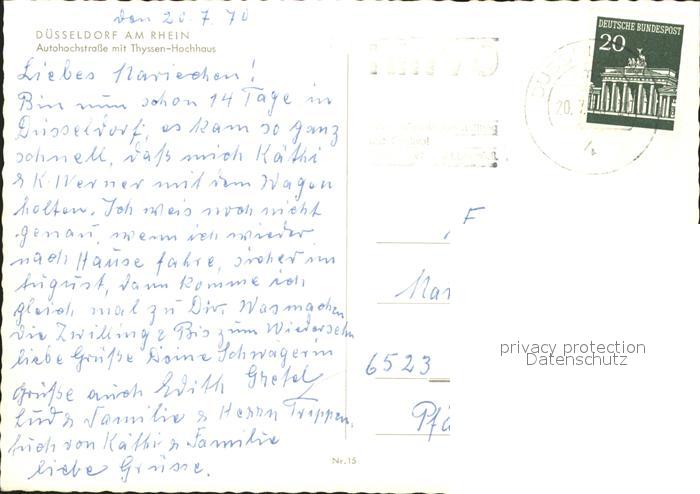 den 20.7.70
DÜSSELDORF AM RHEIN
Autohochstraße mit Thyssen-Hochhaus
Liebes Mariechen!
Bin nun schon 14 Tage in
Düsseldorf, es kam so ganz
schnell, daß mich Käthi
& K. Werner mit dem Wagen
holten. Ich weis noch nicht
genau, wenn ich wieder
nach Hause fahre, sicher im
August, dann komme ich
gleich mal zu Dir. Was machen
die Zwillinge Bis zum Wiedersehn
liebe Grüße Deine Schwägerin
Gretel
Grüße auch Edith
Lud & Familie & Herrn
von Käthi & Familie
liebe Grüsse.
Nr. 15
DEUTSCHE BUNDESPOST
20
20.7.
F
Mar
6523
Pfä
privacy protection
Datenschutz